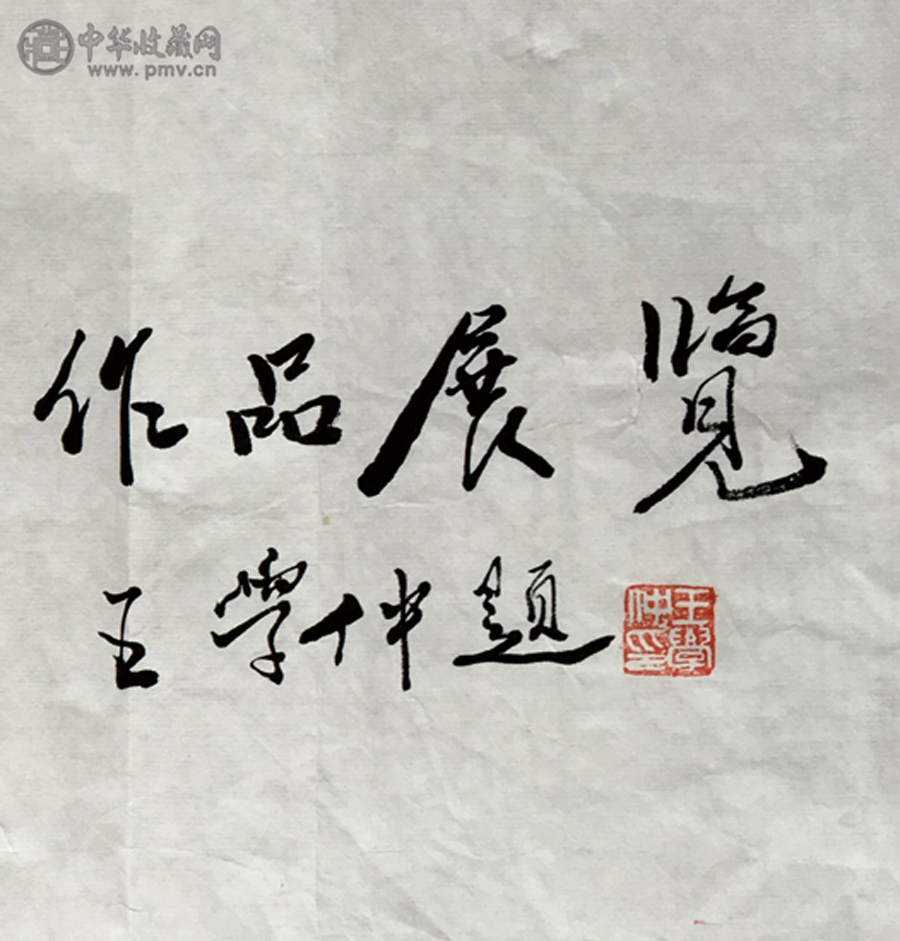 中华收藏网
www.pmv.cn
作品展覽
王學仲題
王學仲印